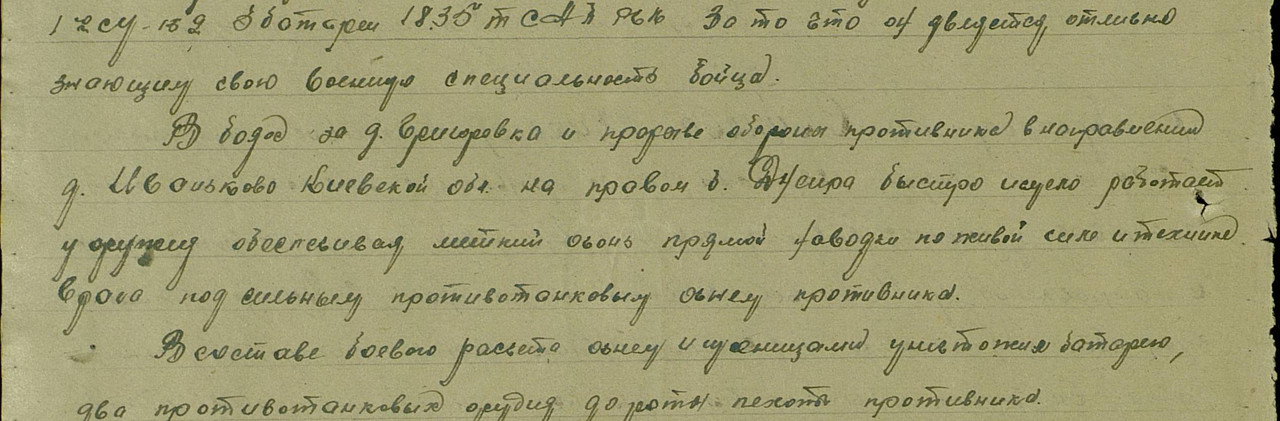 батареи 1835 т САП РГК За то что он является отлично
знающим свою военную специальность бойца.
В боях за д. Григоровка и прорыве обороны противника в направлении
д. Иваньково Киевской обл. на правом б. Днепра быстро и умело работает
у орудия обеспечивая меткий огонь прямой наводки по живой силе и технике
врага под сильным противотанковым огнем противника.
В составе боевого расчета огнем и гусеницами уничтожил батарею,
два противотанковых орудия до роты пехоты противника.